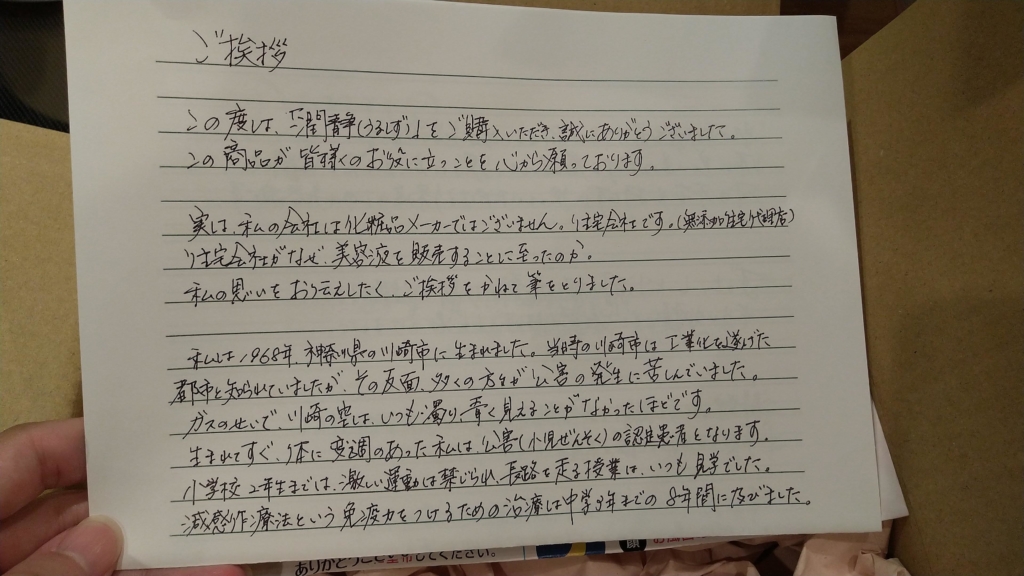 ご挨拶
この度は、「潤静(うるしず)」をご購入いただき、誠にありがとうございました。
この商品が皆様のお役に立つことを心から願っております。
実は、私の会社は化粧品メーカーではございません。住宅会社です。(無添加住宅代理店)
住宅会社がなぜ、美容液を販売することに至ったのか。
私の思いをお伝えしたく、ご挨拶をかねて筆をとりました。
私は1968年、神奈川県の川崎市に生まれました。当時の川崎市は工業化を遂げた
都市と知られていましたが、その反面、多くの方々が公害の発生に苦しんでいました。
ガスのせいで、川崎の空は、いつも濁り、青く見えることがなかったほどです。
生まれてすぐ、体に変調のあった私は、公害(小児ぜんそく)の認定患者となります。
小学校2年生までは、激しい運動は禁じられ、長距離を走る授業は、いつも見学でした。
減感作療法という免疫力をつけるための治療は中学3年までの8年間に及びました。
ありがとうございます
ください。